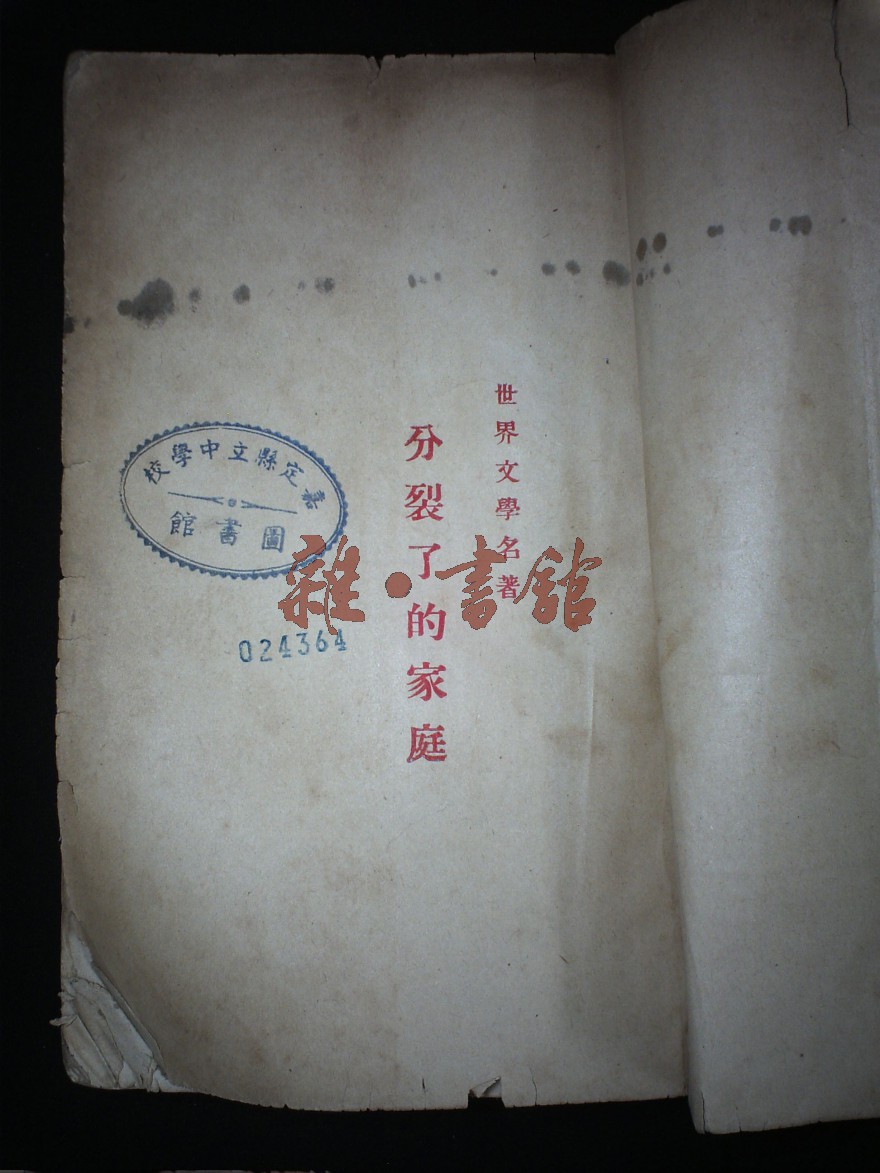 世界文學名著
分裂了的家庭
嘉定縣立中學校
圖書館
024364
雜·書館